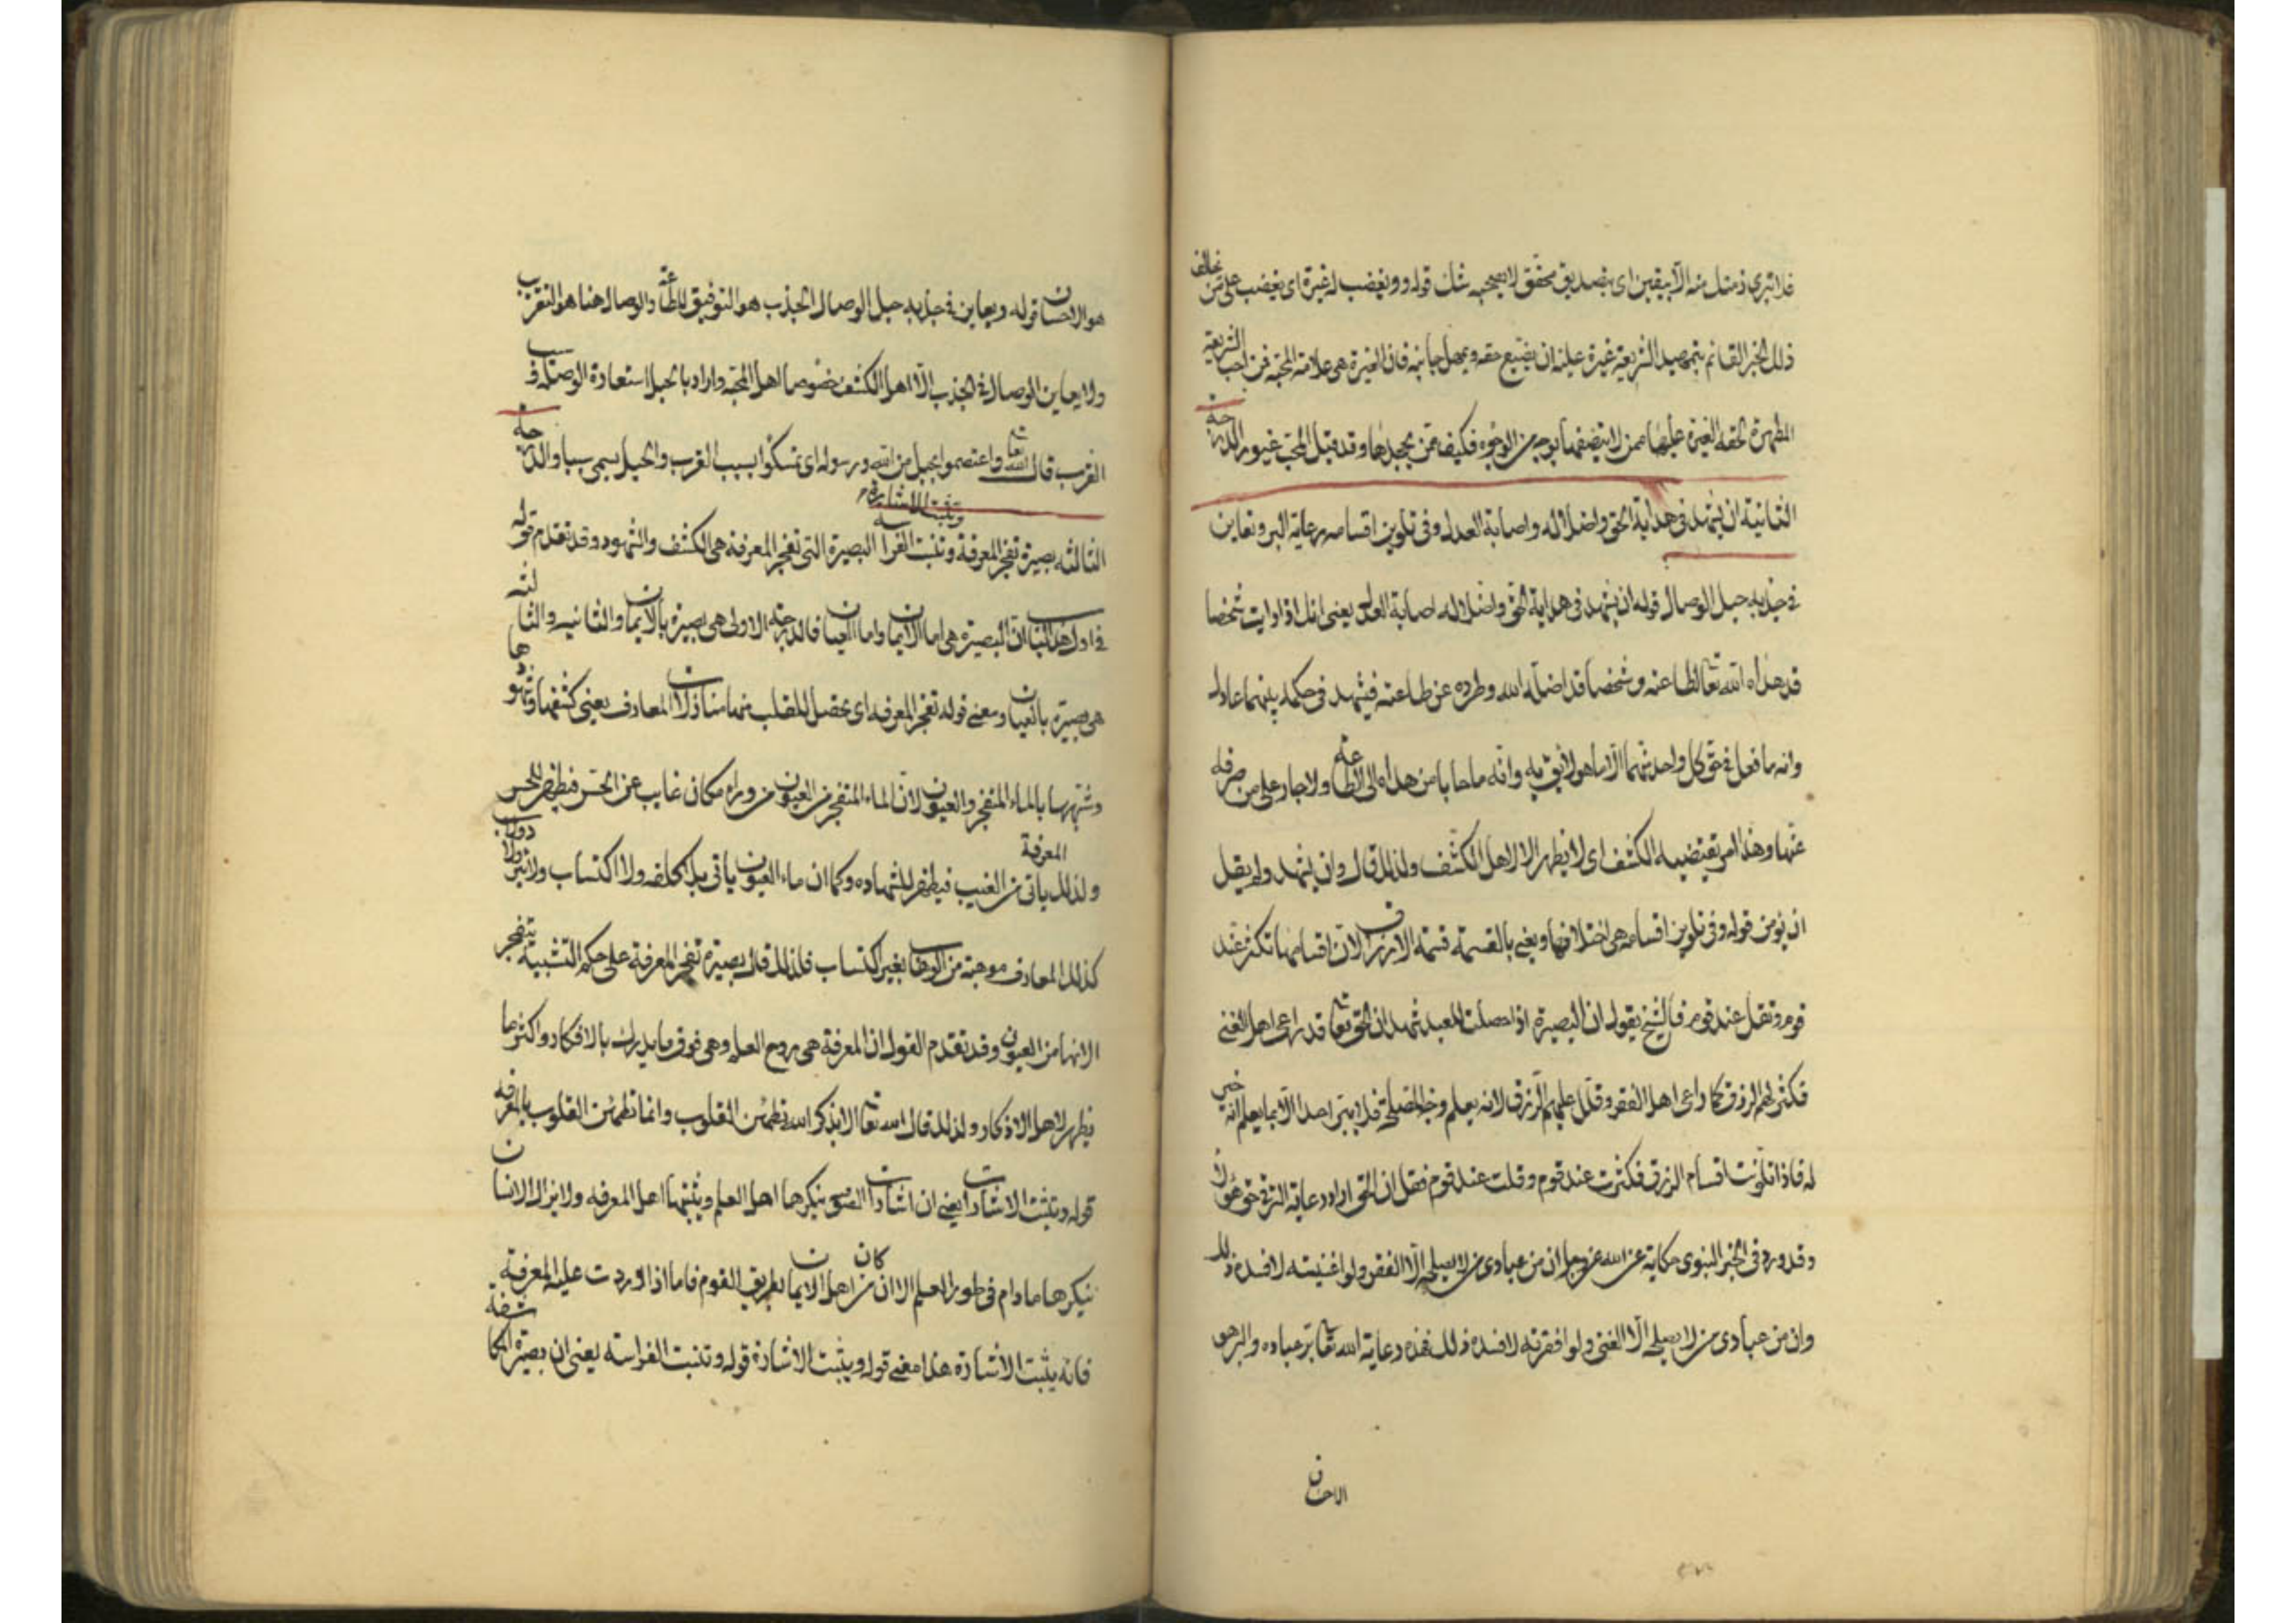 فلا تترى ذمتك منه الا بيقين اى بتصديق محقق لا يصحبه شك قوله ويغضب له غيرة اى يغضب على من يخالف
ذلك الخبر القائم بتمهيد الشريعة غيرة عليه ان يضيع حقه ويهمل جانبه فان الغيرة هى علامة المحبة فمن احب الشريعة
المطهرة لحقه الغيرة عليها ممن لا ينصفها بوجه من الوجوه فكيف ممن يجحدها وقد قيل المحب غيور الدرجة
الثانية ان يشهد فى هداية الحق واضلاله واصابة العدل وفى تلوين اقسامه رعاية البر وتعاين
فى جذبه حبل الوصال قوله ان يشهد فى هداية الحق واضلاله اصابة العدل يعنى انك اذا رايت شخصا
قد هداه الله تعالى لطاعته وشخصا قد اضله الله وطرده عن طاعته فيشهد فى حكمه بينهما عادل
وانه ما فعل فى حق كل واحد منهما الا ما هو لائق به وانه ما حابا من هداه الى الطاعة ولا جار على من صرفه
عنها وهذا امر تقتضيه الكشف اى لا يظهر الا لاهل الكشف ولذلك قال وان يشهد ولم يقل
ان يؤمن قوله وفى تلوين اقسامه هى اختلافها ويعنى بالقسمة قسمة الارزاق لان اقسامها تكثر عند
قوم وتقل عند قوم فالشيخ يقول ان البصيرة اذا حصلت للعبد شهد ان الحق تعالى قد راعى اهل الغنى
فكثر لهم الرزق كما راعى اهل الفقر وقلل عليهم الرزق لانه يعلم وجه المصلحة فلا يبتر احدا الا بما يعلم انه خير
له فاذا تلونت اقسام الرزق فكثرت عند قوم وقلت عند قوم فقل ان الحق اراد رعاية البر فى حق هؤلاء
وقد ورد فى الخبر النبوى حكاية عن الله عز وجل ان من عبادى من لا يصلحه الا الفقر ولو اغنيته لافسده ذلك
وان من عبادى من لا يصلحه الا الغنى ولو افقرته لافسده ذلك فهذه رعاية الله تعالى بر عباده والبر هو
الاحسان
هو الاحسان قوله ويعاين فى جذبه حبل الوصال الجذب هو التوفيق للطاعة والوصال هنا هو التقريب
ولا يعاين الوصال فى الجذب الا اهل الكشف خصوصا اهل المحبة واراد بالحبل استعارة الوصلة فى سبب
القرب قال الله تعالى واعتصموا بحبل من الله ورسوله اى تمسكوا بسبب القرب والحبل يسمى سببا والدرجة
الثالثة بصيرة تفجر المعرفة وتثبت الاشارة وتنبت الفراسة البصيرة التى تفجر المعرفة هى الكشف والشهود وقد تقدم قوله
فى اول هذا الباب ان البصيرة هى اما الايمان واما العيان فالدرجة الاولى هى بصيرة بالايمان والثانية والثالثة
هى بصيرة بالعيان ومعنى قوله تفجر المعرفة اى يحصل للقلب منها منازلات المعارف يعنى كشفها وشهودها
وشبهها بالماء المتفجر والعيون لان الماء المتفجر من العيون من وراء مكان غايب عن الحس فيظهر للحس
ولذلك المعرفة ياتى من الغيب فيظهر للشهادة وكما ان ماء العيون ياتى بلا كلفه ولا اكتساب ولا بئر ولا دولاب
كذلك المعارف موهبة من الوهاب بغير اكتساب فلذلك قال بصيرة تفجر المعرفة على حكم التشبيه بتفجر
الانهار من العيون وقد تقدم القول ان المعرفة هى روح العلم وهى فوق ما يدرك بالافكار واكثر ما
يظهر لاهل الاذكار ولذلك قال الله تعالى الا بذكر الله تطمئن القلوب وانما تطمئن القلوب بالمعرفه
قوله وتثبت الاشارات يعنى ان اشارات الصوفية ينكرها اهل العلم ويثبتها اهل المعرفه ولا يزال الانسان
ينكرها ما دام فى طور العلم الا ان كان من اهل الايمان بطريق القوم فاما اذا وردت عليه المعرفة
فانه يثبت الاشارة هذا معنى قوله ويثبت الاشارة قوله وتنبت الفراسه يعنى ان بصيرة المكاشفة